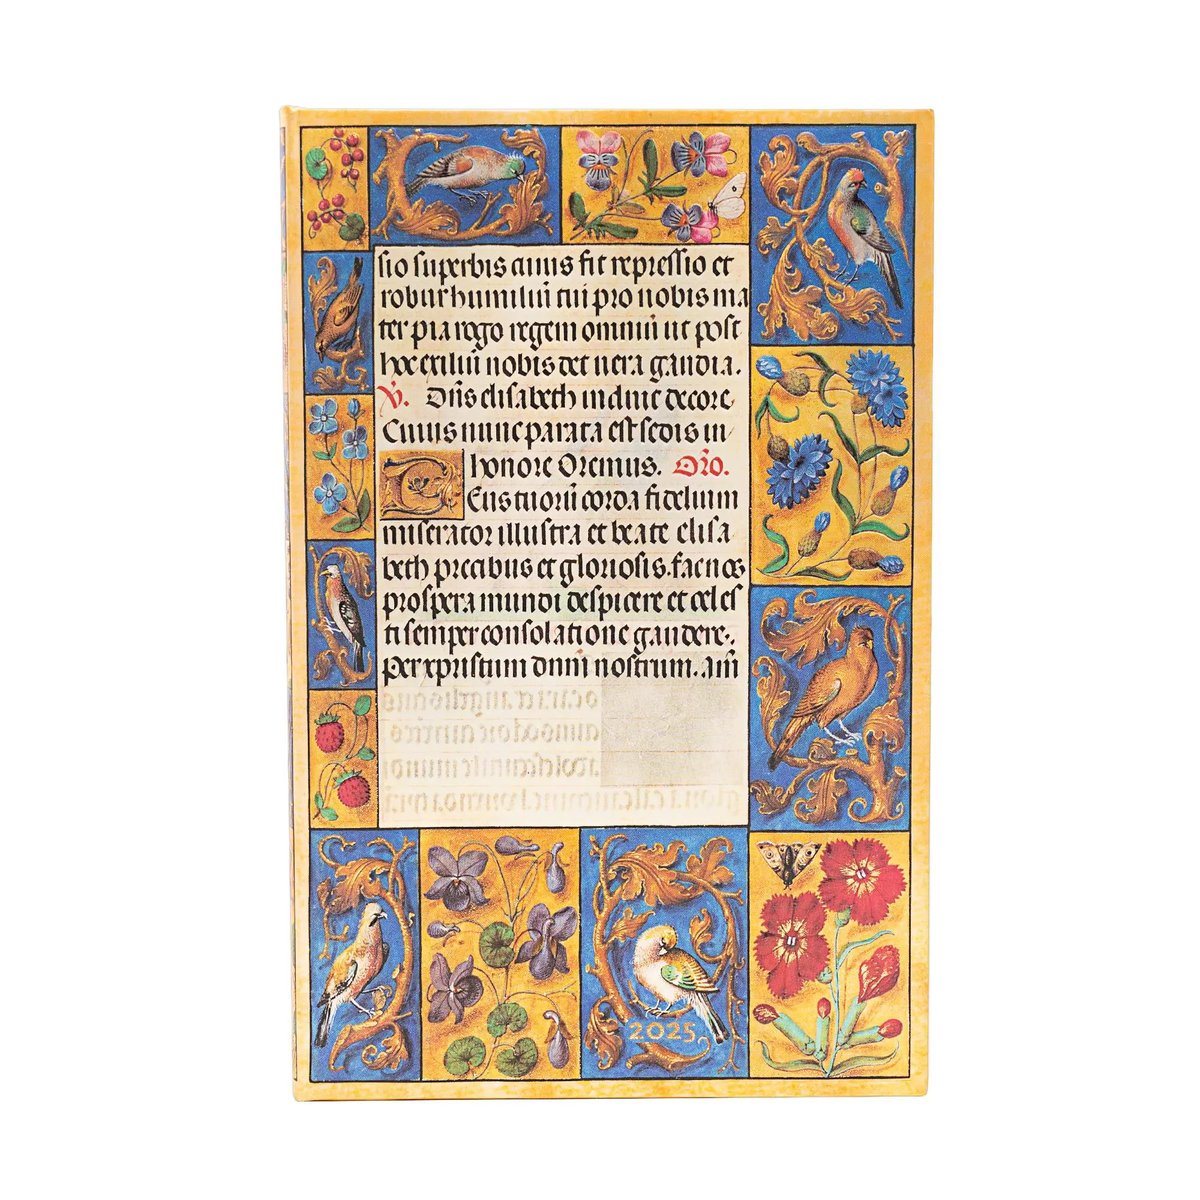 sio superbis cuius fit repressio et
robur humiliū tui pro nobis ma
ter pia rogo regem omniū ut post
hoc exiliū nobis det vera gaudia.
V̄. Dn̄s elisabeth induit decore
Cuius nunc parata est sedis in
honore Oremus. Or̄o.
Deus tuorū corda fidelium
miserator illustra et beate elisa
beth precibus et gloriosis. fac nos
prospera mundi despicere et celes
ti semper consolatione gaudere.
Per xpristum dn̄m nostrum. am̄
2025